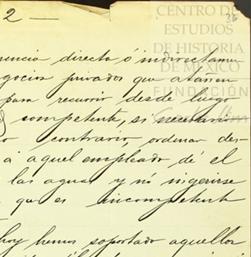 2 —
CENTRO DE
ESTUDIOS
DE HISTORIA
DE MEXICO
FUNDACIÓN
36
directa ó indirectamen
privados que atañen
para recurrir desde luego
competente, si necesario
contrario, ordenar des-
á aquel empleado de él
las aguas y nó ingerirse
que es incompetente
hoy hemos soportado aquellos